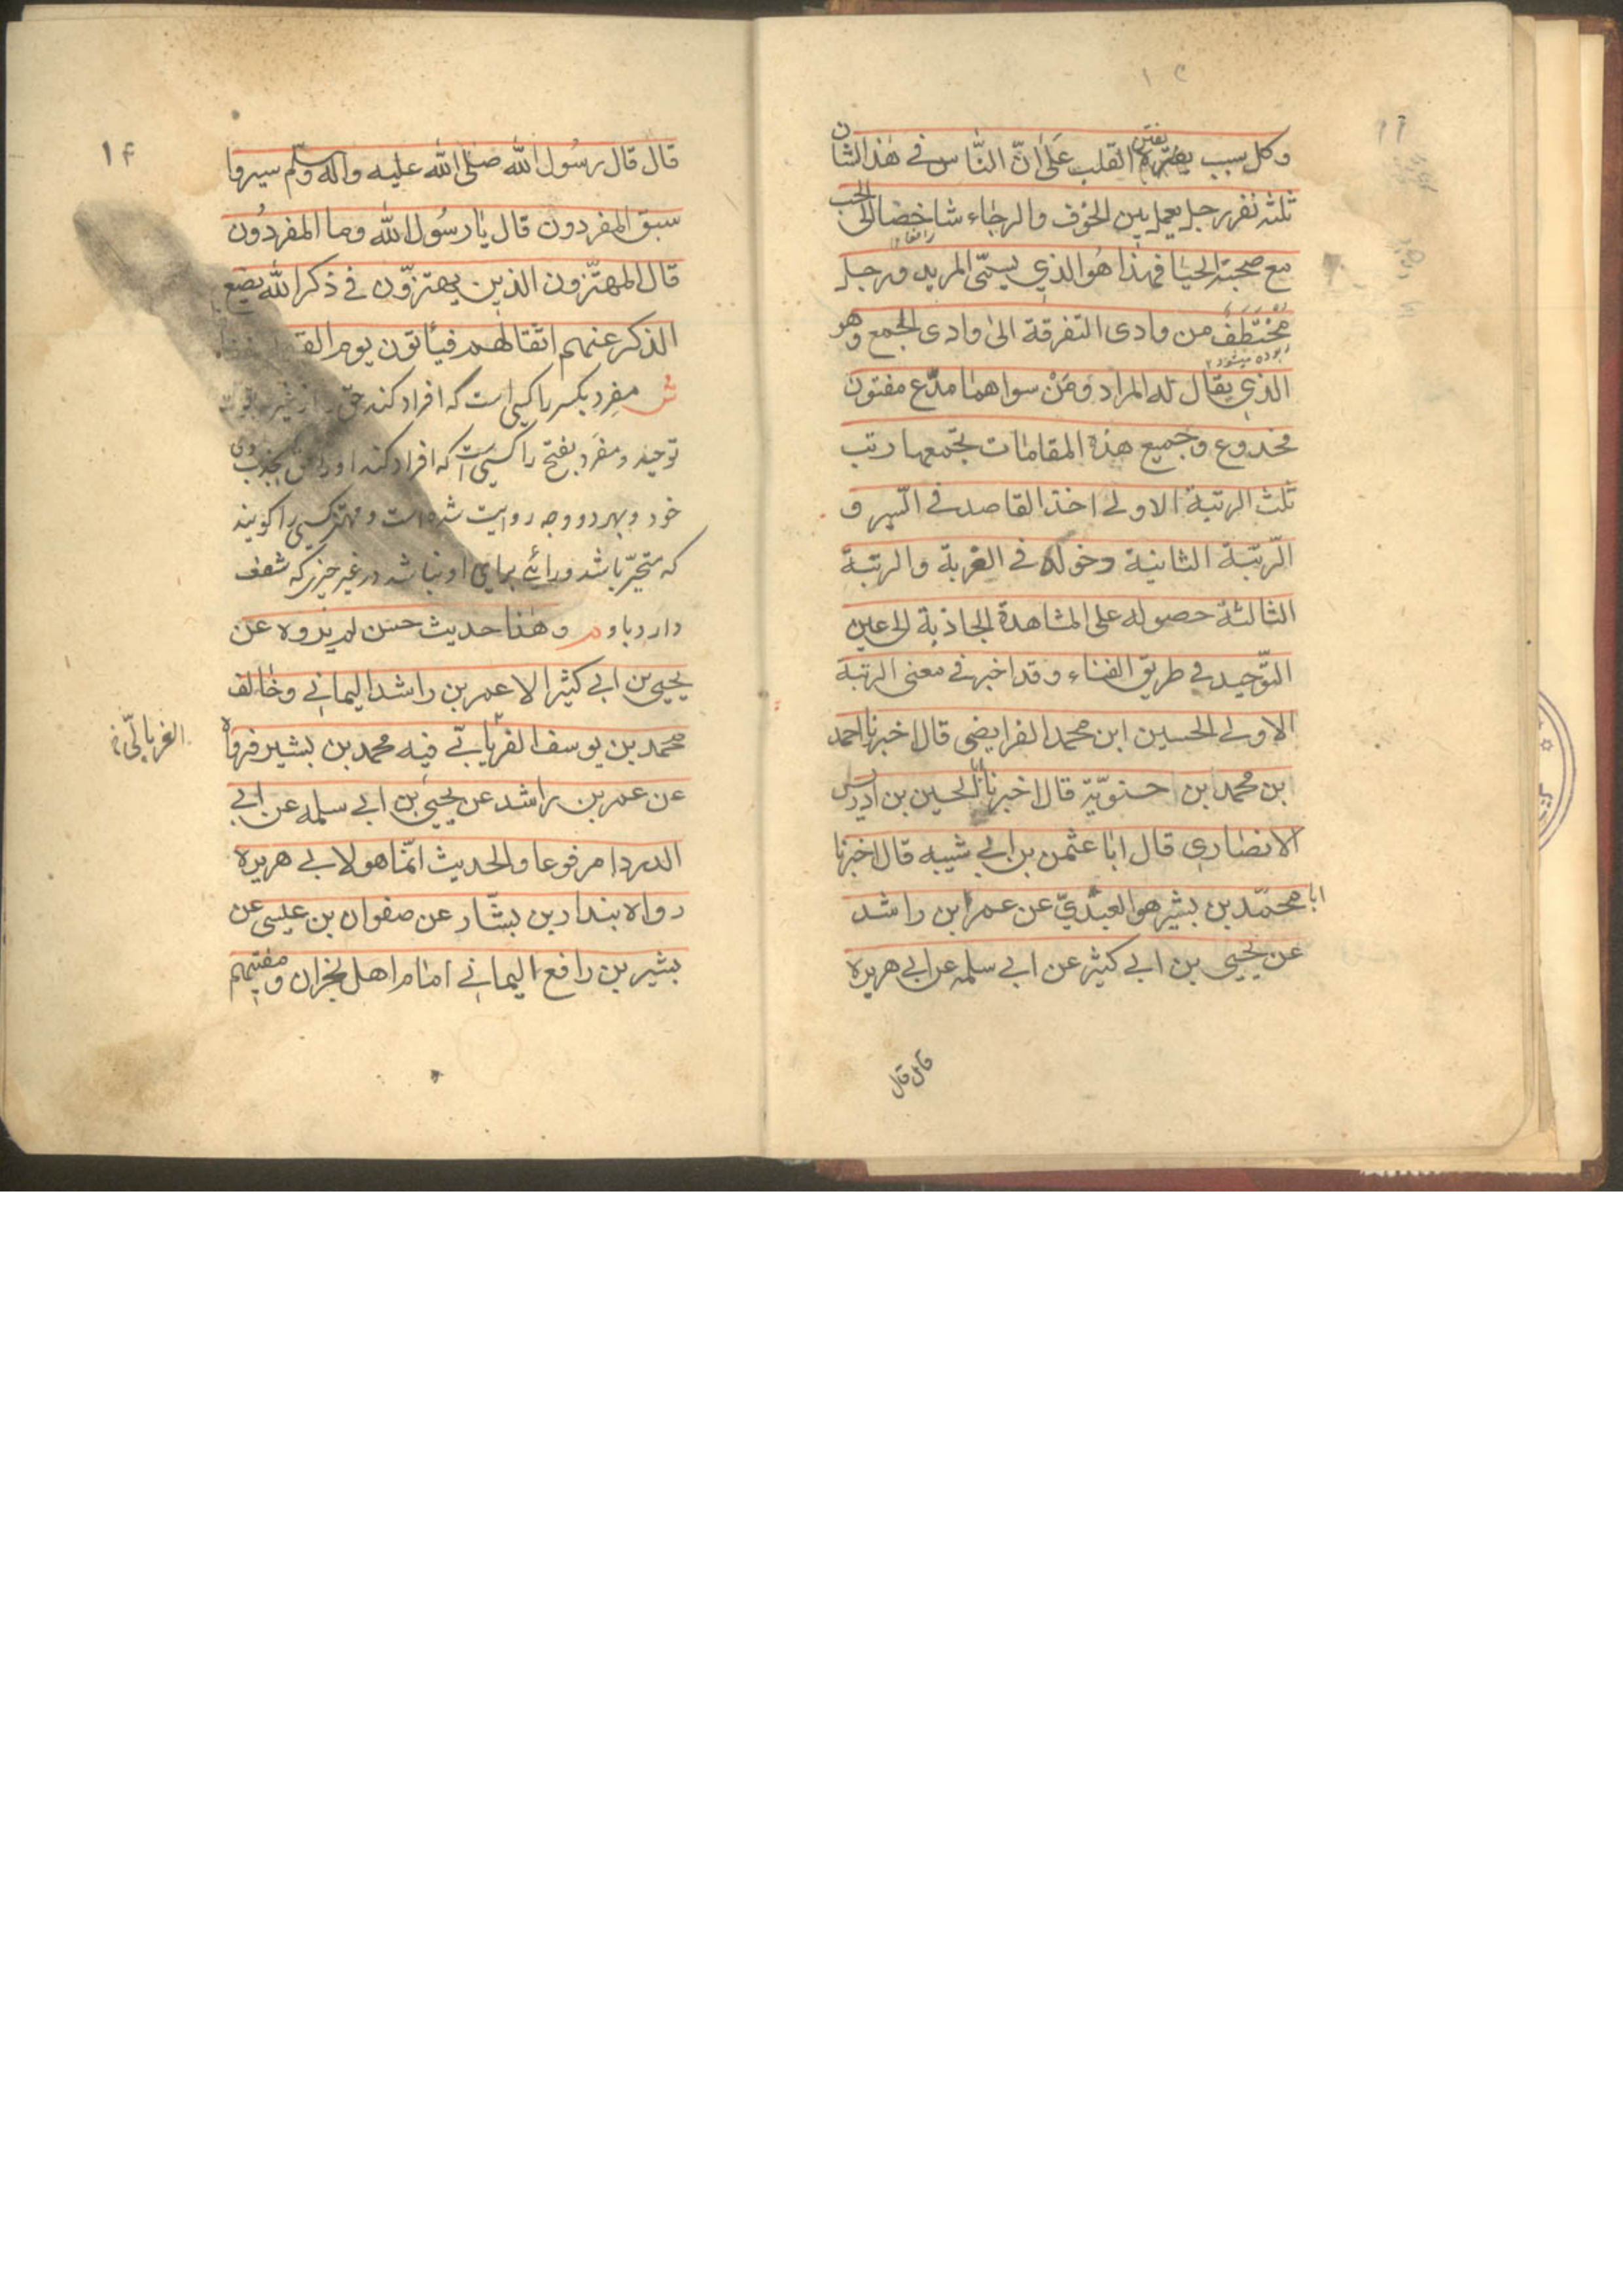 وكل سبب يفترق القلب على انّ النّاس فى هذا الشان
ثلثه نفر رجل يعمل بين الخوف والرجاء شاخصا الى الحب
مع صحبة الحيا فهذا هو الذي يسمّى المريد ورجل
مختطف من وادى التفرقة الى وادى الجمع وهو
ربوده ميشود
الذي يقال له المراد ومن سواهما مدّع مفتون
مخدوع وجميع هذه المقامات تجمعها رتب
ثلث الرتبة الاولى اخذ القاصد فى السّير و
الرّتبة الثانية دخوله فى الغربة والرتبة
الثالثة حصوله على المشاهدة الجاذبة الى عين
التّوحيد فى طريق الفناء وقد اخبر فى معنى الرتبة
الاولى الحسين ابن محمد الفرايضى قال اخبرنا احمد
بن محمد ابن حسنويّة قال اخبرنا الحسين بن ادريس
الانصاري قال ابا عثمن بن ابى شيبه قال اخبرنا
ابا محمّد بن بشير هو العبديّ عن عمر ابن راشد
عن يحيى بن ابى كثير عن ابى سلمه عن ابى هريره
قال قال
١۴
قال قال رسول الله صلى الله عليه واله وسلّم سيروا
سبق المفردون قال يا رسول الله وما المفردون
قال المهتزّون الذين يهتزّون فى ذكر الله يضع
الذكر عنهم اثقالهم فيأتون يوم
ش مفرد بكسر را كسى است كه افراد كند حق
توحيد و مفرد بفتح را كسى است كه افراد كند او را حق بجذب وى
خود و بهر دو وجه روايت شده است و مهتز كسى را كويند
كه متحيّر باشد و رائے براى او نباشد در غير چيز كه شعف
دارد باو م وهذا حديث حسن لم يروه عن
يحيى بن ابى كثير الا عمر بن راشد اليمانى وخالف
محمد بن يوسف الفريابى فيه محمد بن بشير فرواه
الغربالىّ
عن عمر بن راشد عن يحيى بن ابى سلمه عن ابى
الدردا مرفوعا والحديث انّما هو لابى هريره
رواه بندار بن بشّار عن صفوان بن عيسى عن
بشير بن رافع اليمانى امام اهل نجران ومفتيهم